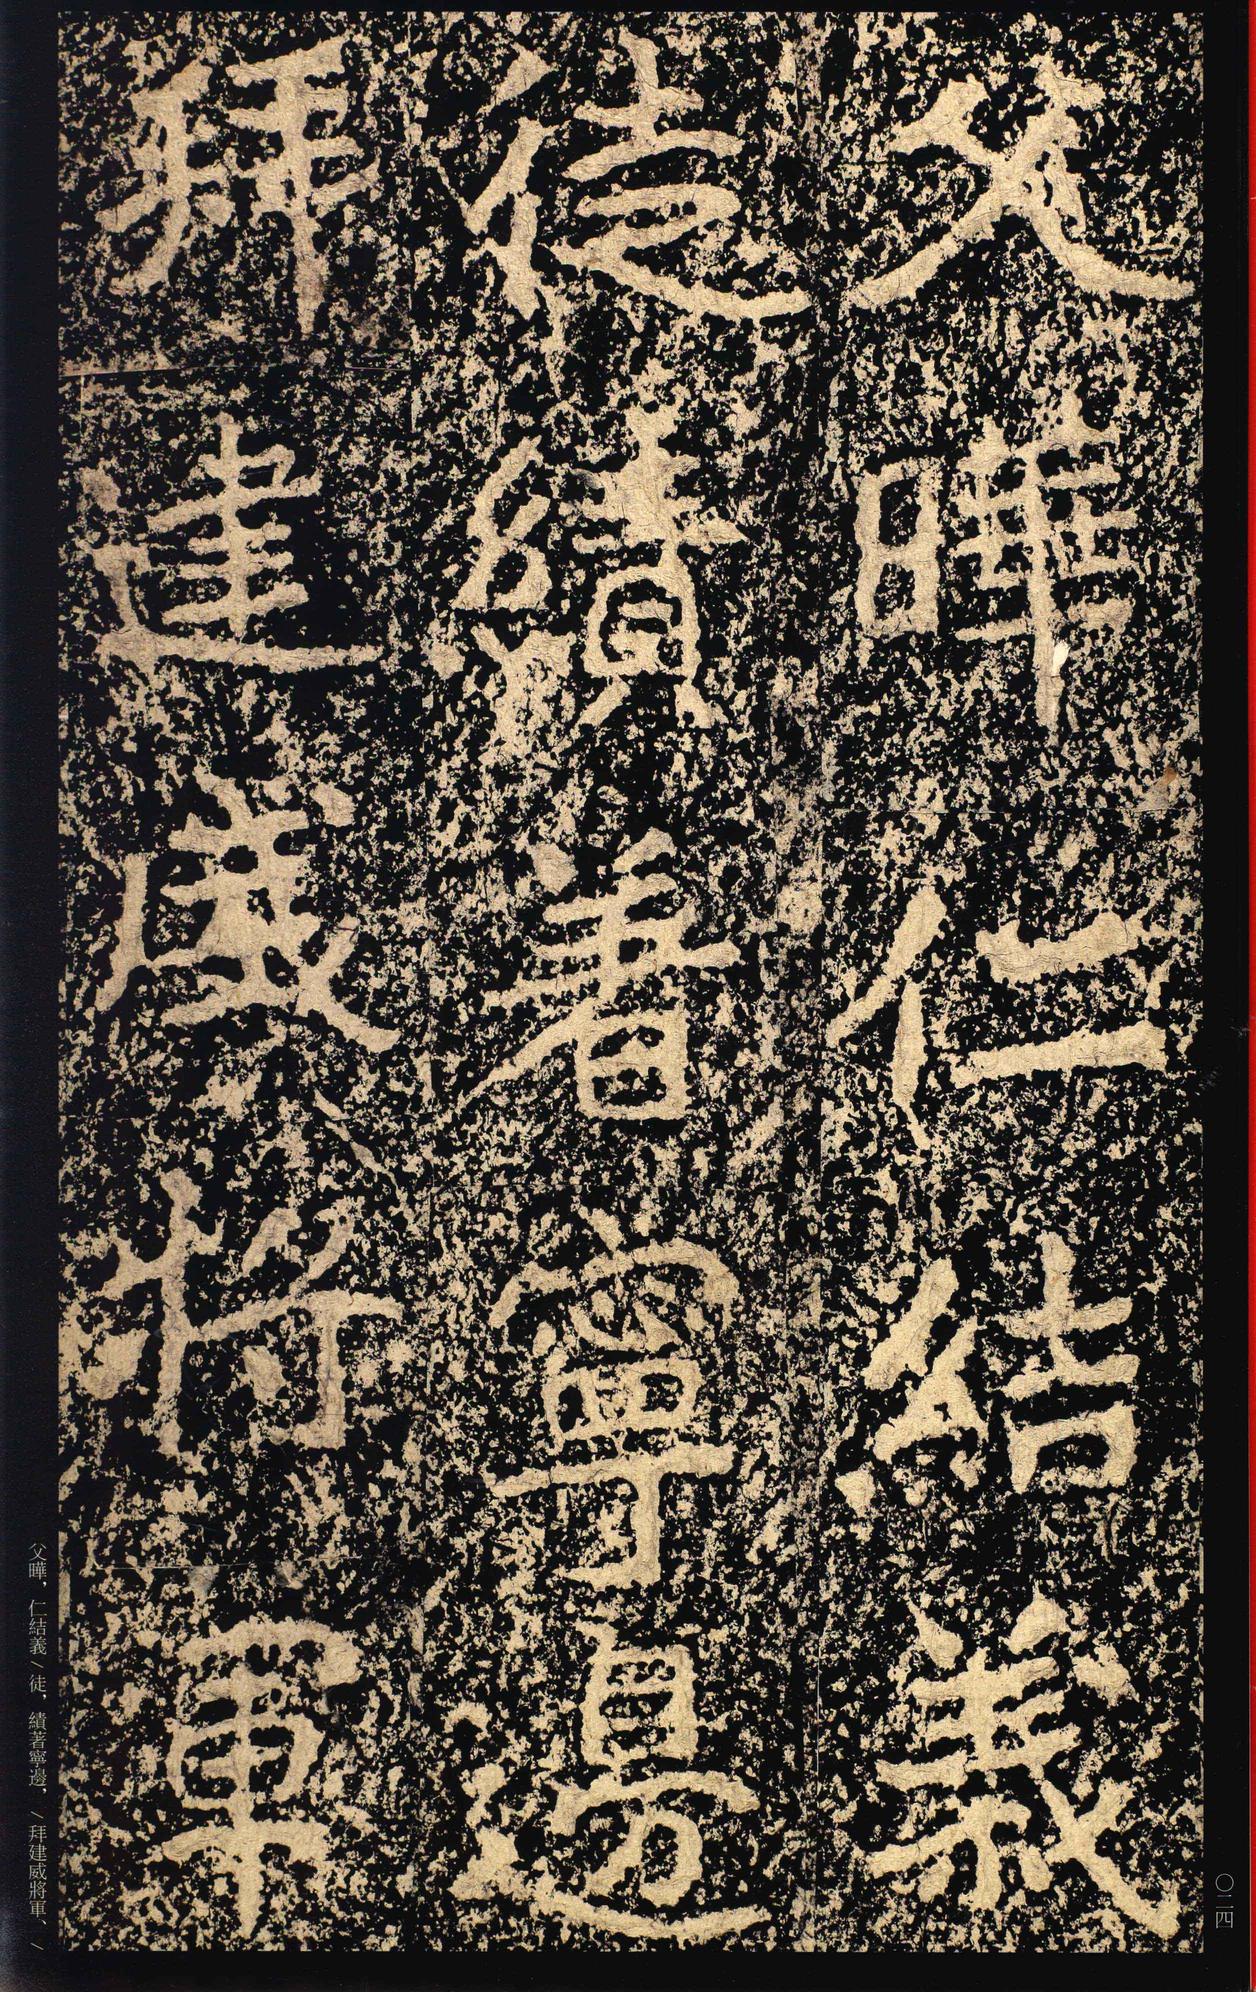 父曄仁結義
徒績著寧邊
拜建威將軍
父曄，仁結義／徒，績著寧邊，／拜建威將軍、／
〇二四